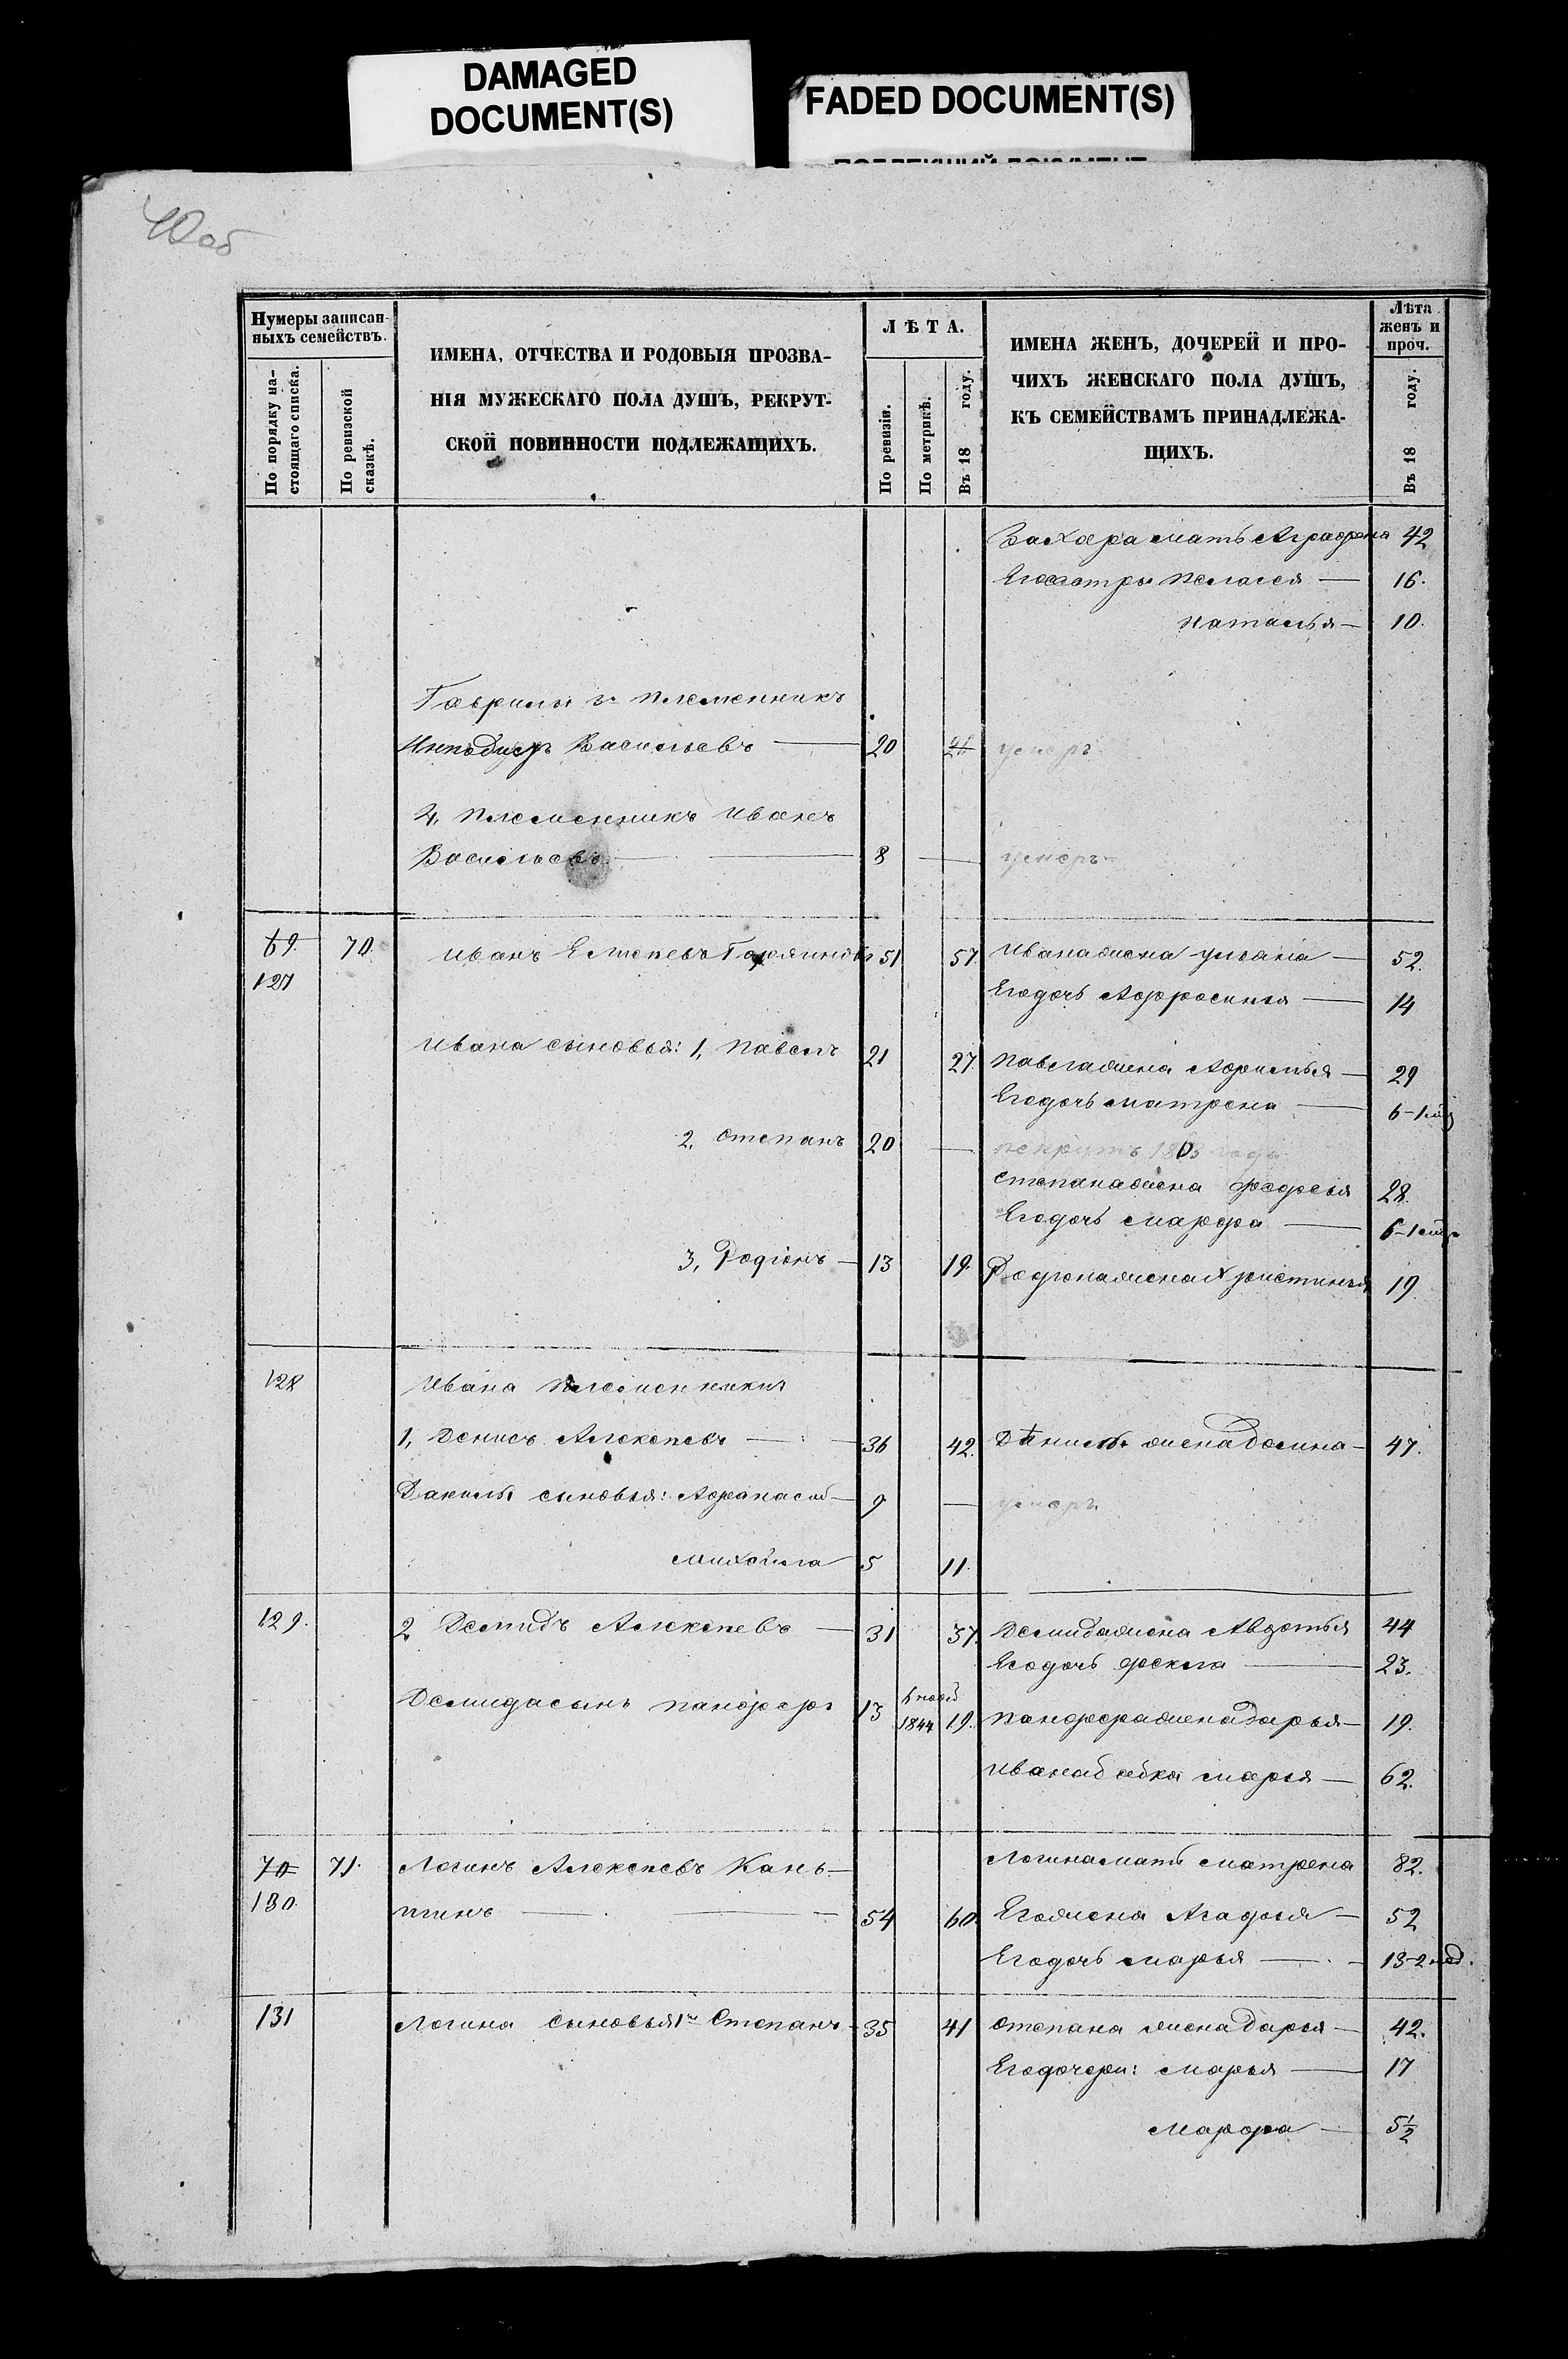 DAMAGED
DOCUMENT(S)
FADED DOCUMENT(S)
40об
Нумеры записан-
ныхъ семействъ.
По порядку на-
стоящаго списка.
По ревизской
сказкѣ.
ИМЕНА, ОТЧЕСТВА И РОДОВЫЯ ПРОЗВА-
НІЯ МУЖЕСКАГО ПОЛА ДУШЪ, РЕКРУТ-
СКОЙ ПОВИННОСТИ ПОДЛЕЖАЩИХЪ.
ЛѢТА.
По ревизіи.
По метрикѣ.
Въ 18 году.
ИМЕНА ЖЕНЪ, ДОЧЕРЕЙ И ПРО-
ЧИХЪ ЖЕНСКАГО ПОЛА ДУШЪ,
КЪ СЕМЕЙСТВАМЪ ПРИНАДЛЕЖА-
ЩИХЪ.
Лѣта
женъ и
проч.
Въ 18 году.
Захара мать Аграфена 42
Его сестры Пелагея — 16.
Наталья — 10.
Гаврилы 3й племенникъ
Васильевъ — 20 умеръ
4, племенникъ Иванъ
Васильевъ — 8 — умеръ
69 70 Иванъ 51 57 Ивана жена Ульяна — 52.
127 Его дочь Афросинья — 14
Ивана сыновья: 1, Павелъ 21 27 Павла жена Афимья — 29
Его дочь Матрена — 6-1
2, Степанъ 20 — года
Степана жена Федосья 28.
Его дочь Марфа — 6-1
3, Родіонъ — 13 19. Родіона жена Христинья 19.
128 Ивана племенники
1, Денисъ Алексеевъ — 36 42. жена 47.
сыновья: Афанасій — 9 — умеръ.
Михайла 5 11.
129. 2 Демидъ Алексеевъ — 31 37. Демида жена Авдотья 44
Его дочь Фекла — 23.
Демида сынъ Панферъ 13 1844 19. Панфера жена Дарья — 19.
Ивана бабка Марья — 62.
70 71. Логинъ Алексеевъ Кань- Логина мать Матрена 82.
130. шинъ — 54 60. Его жена Агафья — 52
Его дочь Марья — 13-2
131 Логина сыновья 1й Степанъ 35 41 Степана жена Дарья — 42.
Его дочери: Марья — 17
Марфа — 5½